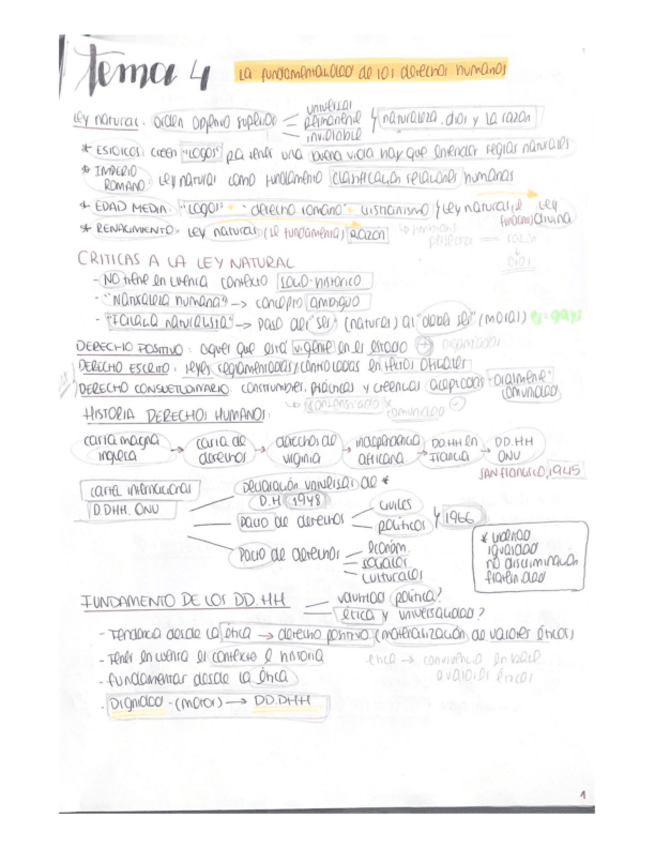 Tema 4
La fundamentalidad de los derechos humanos
Ley natural: orden objetivo superior
universal
permanente
inviolable
y naturaleza, dios y la razón
* ESTOICOS creen "LOGOS" pa tener una buena vida hay que entender reglas naturales
* IMPERIO ROMANO: Ley natural como fundamento clasificación relaciones humanas
* EDAD MEDIA: "LOGOS" + derecho romano + cristianismo y Ley natural, Ley divina
* RENACIMIENTO: Ley natural (le fundamenta) RAZÓN
dios
CRITICAS A LA LEY NATURAL
- NO tiene en cuenta contexto socio-histórico
- "Naturaleza humana" → concepto ambiguo
- "Falacia naturalista" → paso del "ser" (natural) al "deber ser" (moral)
DERECHO POSITIVO: aquel que está vigente en el estado +
DERECHO ESCRITO: leyes reglamentadas/controladas en textos oficiales
DERECHO CONSUETUDINARIO: costumbres, prácticas y creencias aceptadas "oralmente" comunidad
HISTORIA DERECHOS HUMANOS:
carta magna inglesa → carta de derechos → derechos de virginia → independencia → DD.HH en Francia → DD.HH ONU
SAN FRANCISCO, 1945
DDHH. ONU
Declaración universal de * D.H 1948
Pacto de derechos
civiles
políticos
y 1966
Pacto de derechos
económ.
sociales
culturales
igualdad
no discriminación
FUNDAMENTO DE LOS DD.HH
política?
ética y universalidad?
- Tendencia desde la ética → derecho positivo (materialización de valores éticos)
- Tener en cuenta el contexto e historia
- Fundamentar desde la ética
ética → convivencia
valores éticos
- Dignidad - (motor) → DD.DHH
1